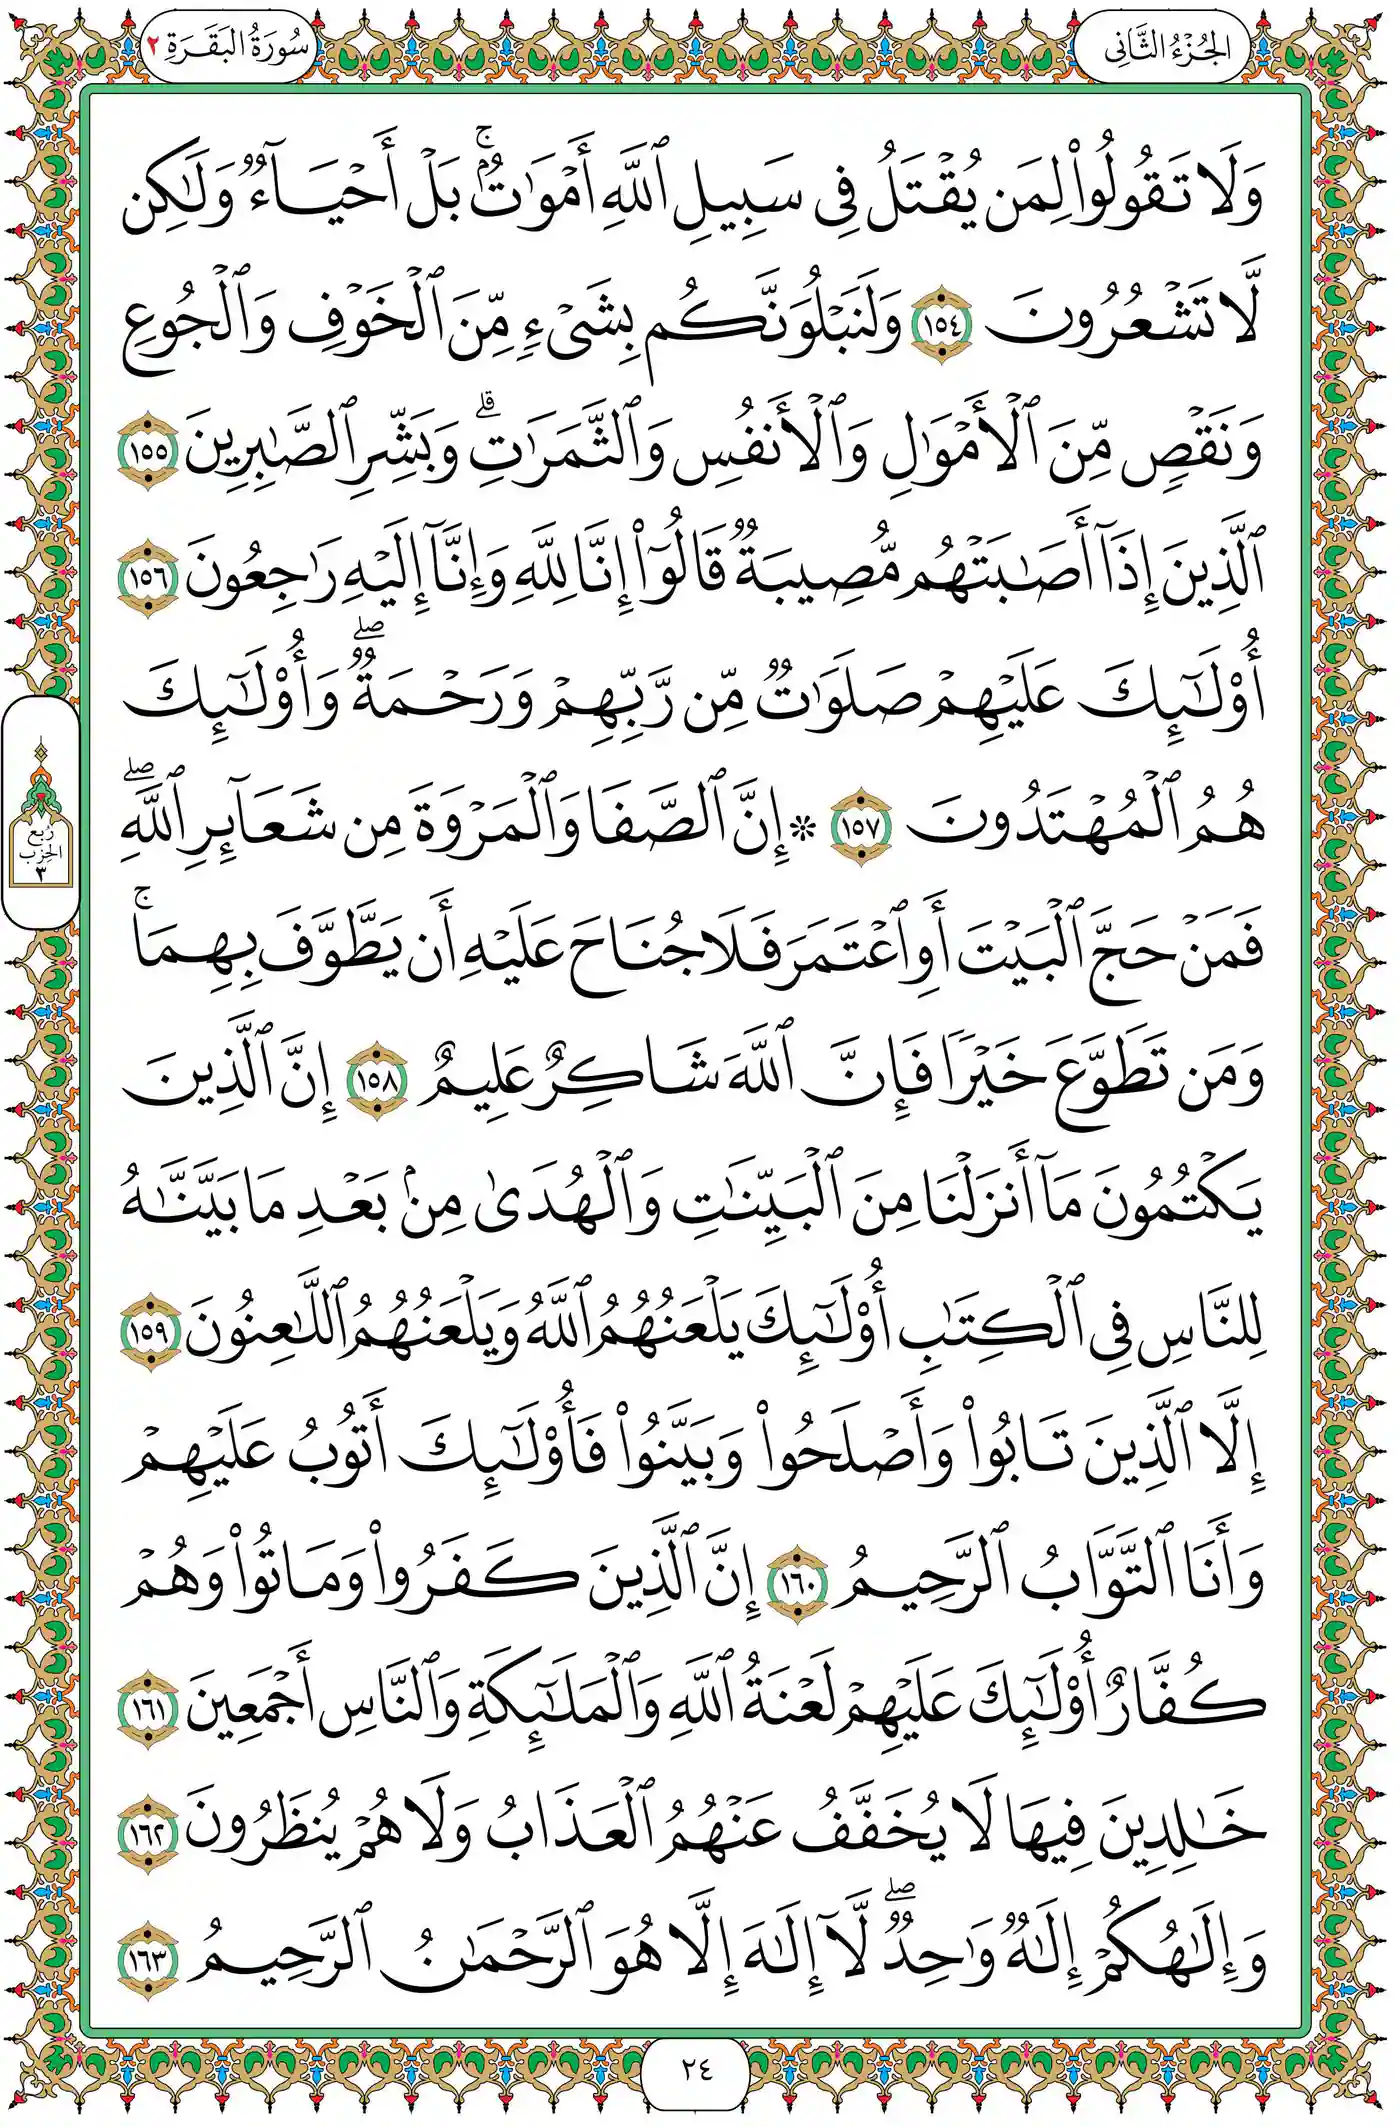 الجُزْءُ الثَّانِى
سُورَةُ البَقَرَةِ ٢
وَلَا تَقُولُوا۟ لِمَن يُقْتَلُ فِى سَبِيلِ ٱللَّهِ أَمْوَٰتٌۢ ۚ بَلْ أَحْيَآءٌ وَلَٰكِن
لَّا تَشْعُرُونَ ١٥٤ وَلَنَبْلُوَنَّكُم بِشَىْءٍ مِّنَ ٱلْخَوْفِ وَٱلْجُوعِ
وَنَقْصٍ مِّنَ ٱلْأَمْوَٰلِ وَٱلْأَنفُسِ وَٱلثَّمَرَٰتِ ۗ وَبَشِّرِ ٱلصَّٰبِرِينَ ١٥٥
ٱلَّذِينَ إِذَآ أَصَٰبَتْهُم مُّصِيبَةٌ قَالُوٓا۟ إِنَّا لِلَّهِ وَإِنَّآ إِلَيْهِ رَٰجِعُونَ ١٥٦
أُو۟لَٰٓئِكَ عَلَيْهِمْ صَلَوَٰتٌ مِّن رَّبِّهِمْ وَرَحْمَةٌ ۖ وَأُو۟لَٰٓئِكَ
هُمُ ٱلْمُهْتَدُونَ ١٥٧ * إِنَّ ٱلصَّفَا وَٱلْمَرْوَةَ مِن شَعَآئِرِ ٱللَّهِ ۖ
رُبع
الحِزْب
٣
فَمَنْ حَجَّ ٱلْبَيْتَ أَوِ ٱعْتَمَرَ فَلَا جُنَاحَ عَلَيْهِ أَن يَطَّوَّفَ بِهِمَا ۚ
وَمَن تَطَوَّعَ خَيْرًا فَإِنَّ ٱللَّهَ شَاكِرٌ عَلِيمٌ ١٥٨ إِنَّ ٱلَّذِينَ
يَكْتُمُونَ مَآ أَنزَلْنَا مِنَ ٱلْبَيِّنَٰتِ وَٱلْهُدَىٰ مِنۢ بَعْدِ مَا بَيَّنَّٰهُ
لِلنَّاسِ فِى ٱلْكِتَٰبِ أُو۟لَٰٓئِكَ يَلْعَنُهُمُ ٱللَّهُ وَيَلْعَنُهُمُ ٱللَّٰعِنُونَ ١٥٩
إِلَّا ٱلَّذِينَ تَابُوا۟ وَأَصْلَحُوا۟ وَبَيَّنُوا۟ فَأُو۟لَٰٓئِكَ أَتُوبُ عَلَيْهِمْ
وَأَنَا ٱلتَّوَّابُ ٱلرَّحِيمُ ١٦٠ إِنَّ ٱلَّذِينَ كَفَرُوا۟ وَمَاتُوا۟ وَهُمْ
كُفَّارٌ أُو۟لَٰٓئِكَ عَلَيْهِمْ لَعْنَةُ ٱللَّهِ وَٱلْمَلَٰٓئِكَةِ وَٱلنَّاسِ أَجْمَعِينَ ١٦١
خَٰلِدِينَ فِيهَا لَا يُخَفَّفُ عَنْهُمُ ٱلْعَذَابُ وَلَا هُمْ يُنظَرُونَ ١٦٢
وَإِلَٰهُكُمْ إِلَٰهٌ وَٰحِدٌ ۖ لَّآ إِلَٰهَ إِلَّا هُوَ ٱلرَّحْمَٰنُ ٱلرَّحِيمُ ١٦٣
٢٤